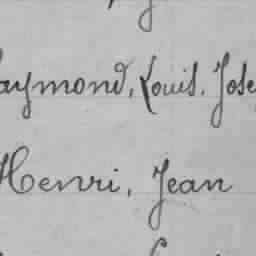 aymond, Louis. Jose
Henri, Jean